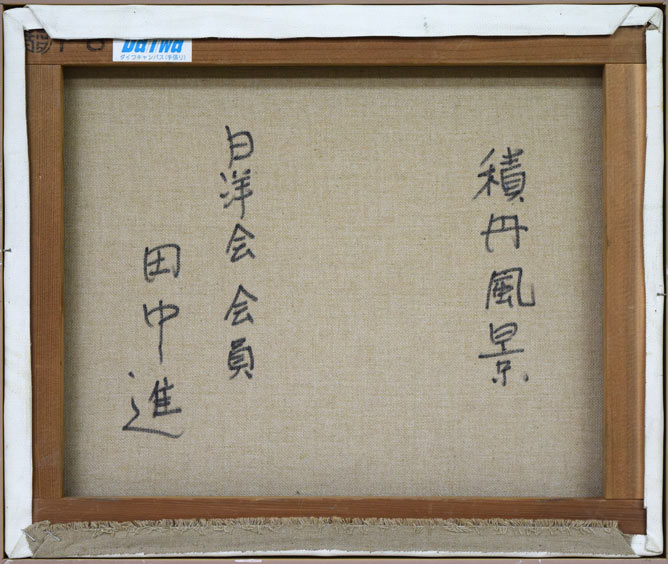 Daiwa
ダイワキャンバス(手張り)
積丹風景
日洋会 会員
田中進